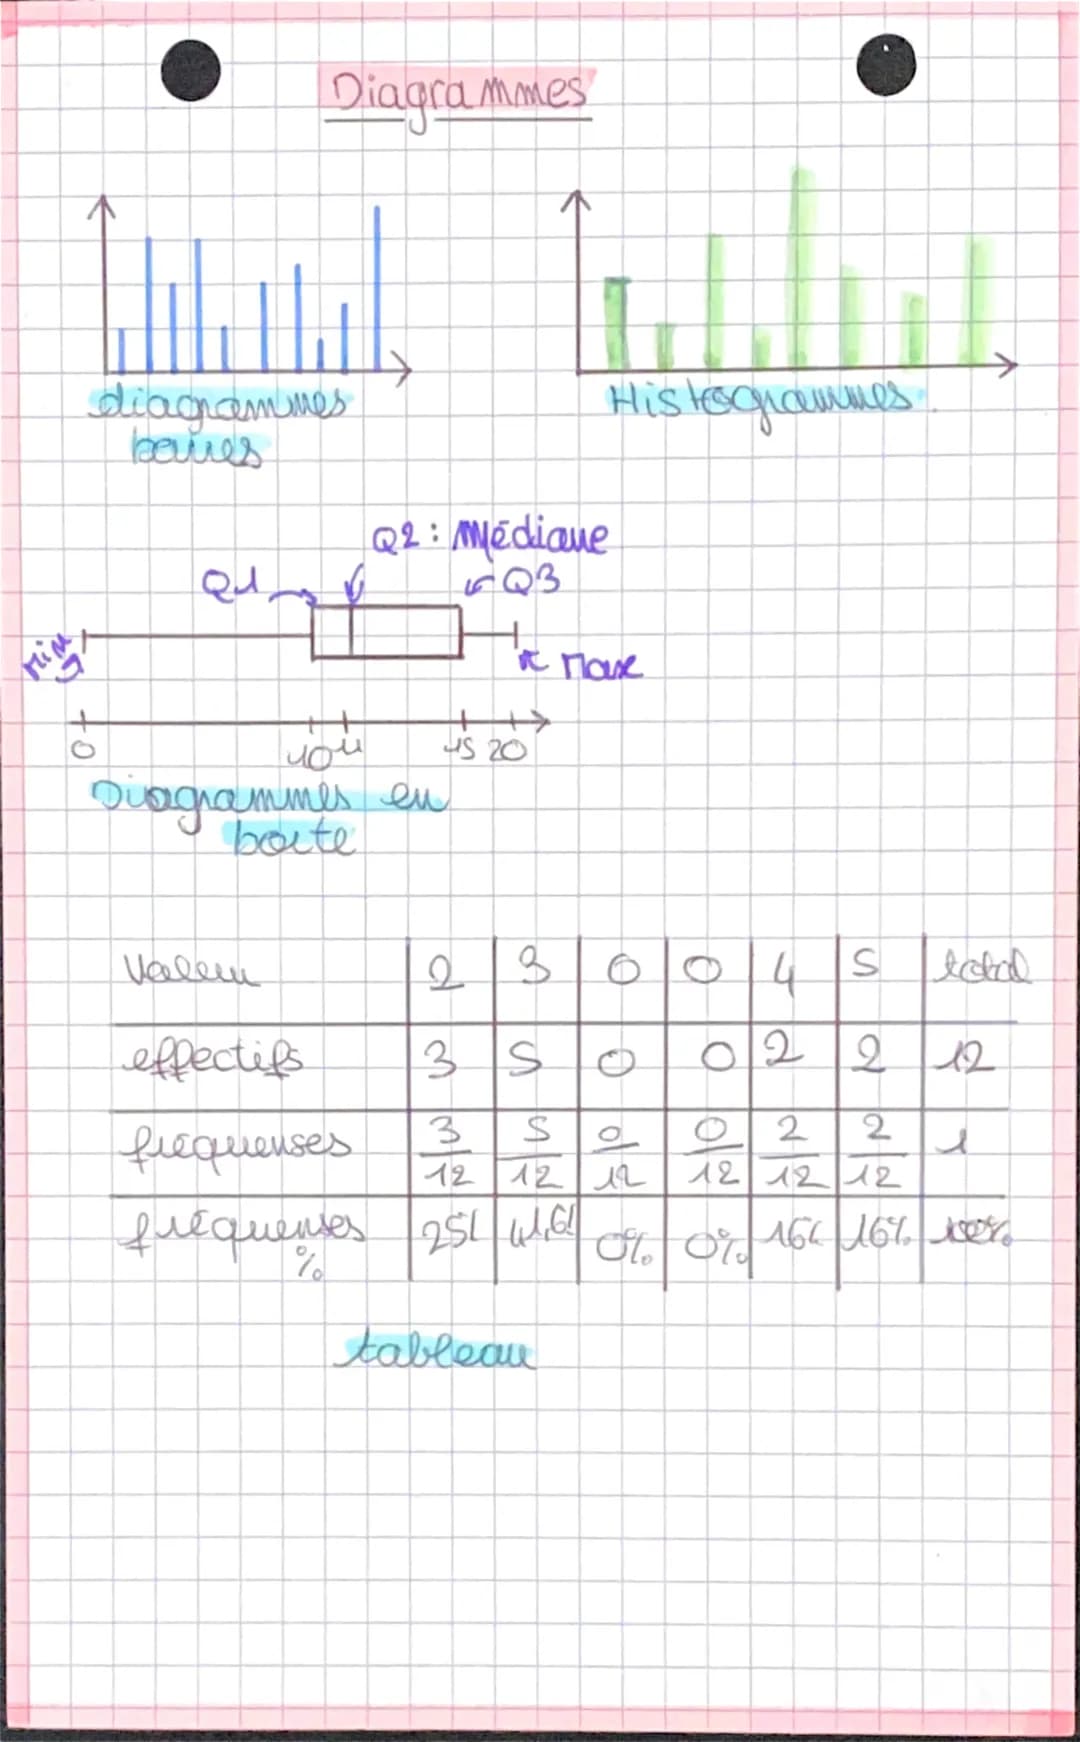 Diagrammes
diagrammes
barres
Histogrammes
Q2 : Médiane
Q1
Q3
Min
Max
0 10 11 15 20
Diagrammes en
boite
Valeur 2 3 0 0 4 5 total
effectifs 3 5 0 0 2 2 12
fréquenses 3/12 5/12 0/12 0/12 2/12 2/12 1
fréquenses % 25% 41,6% 0% 0% 16% 16% 100%
tableau